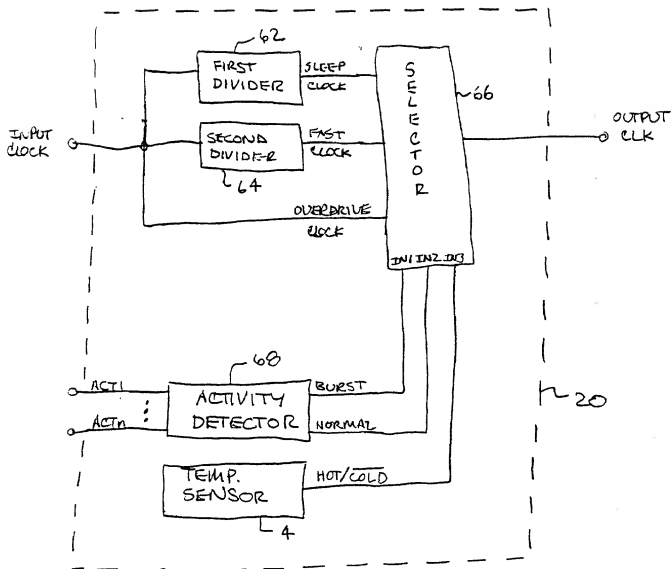 62
FIRST
DIVIDER
SLEEP
CLOCK
SELECTOR
66
INPUT
CLOCK
SECOND
DIVIDER
64
FAST
CLOCK
OUTPUT
CLK
OVERDRIVE
CLOCK
IN1 IN2 IN3
68
ACT1
ACTn
ACTIVITY
DETECTOR
BURST
NORMAL
20
TEMP.
SENSOR
HOT/COLD
4